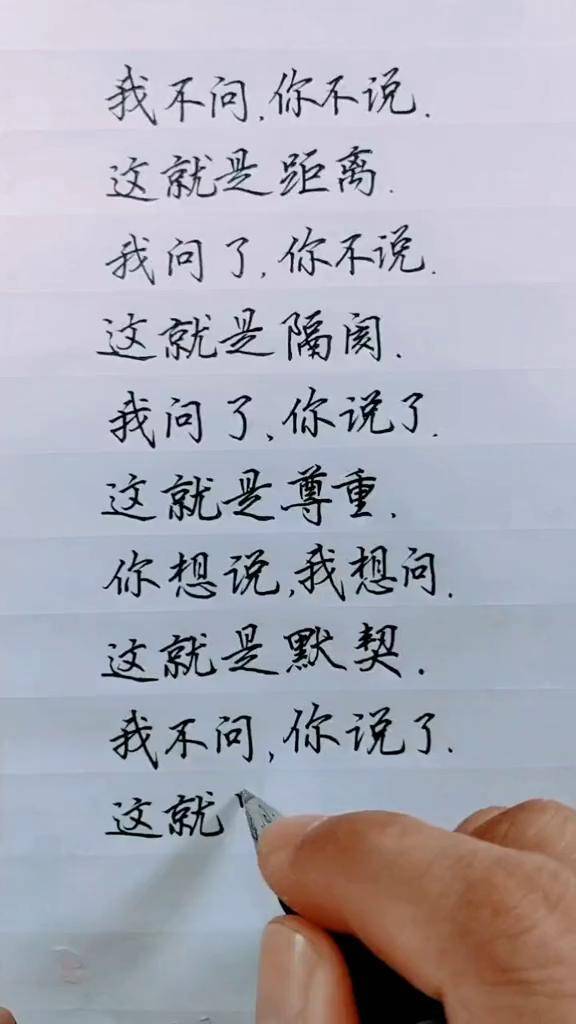 我不问,你不说.
这就是距离.
我问了,你不说.
这就是隔阂.
我问了,你说了.
这就是尊重.
你想说,我想问.
这就是默契.
我不问,你说了.
这就